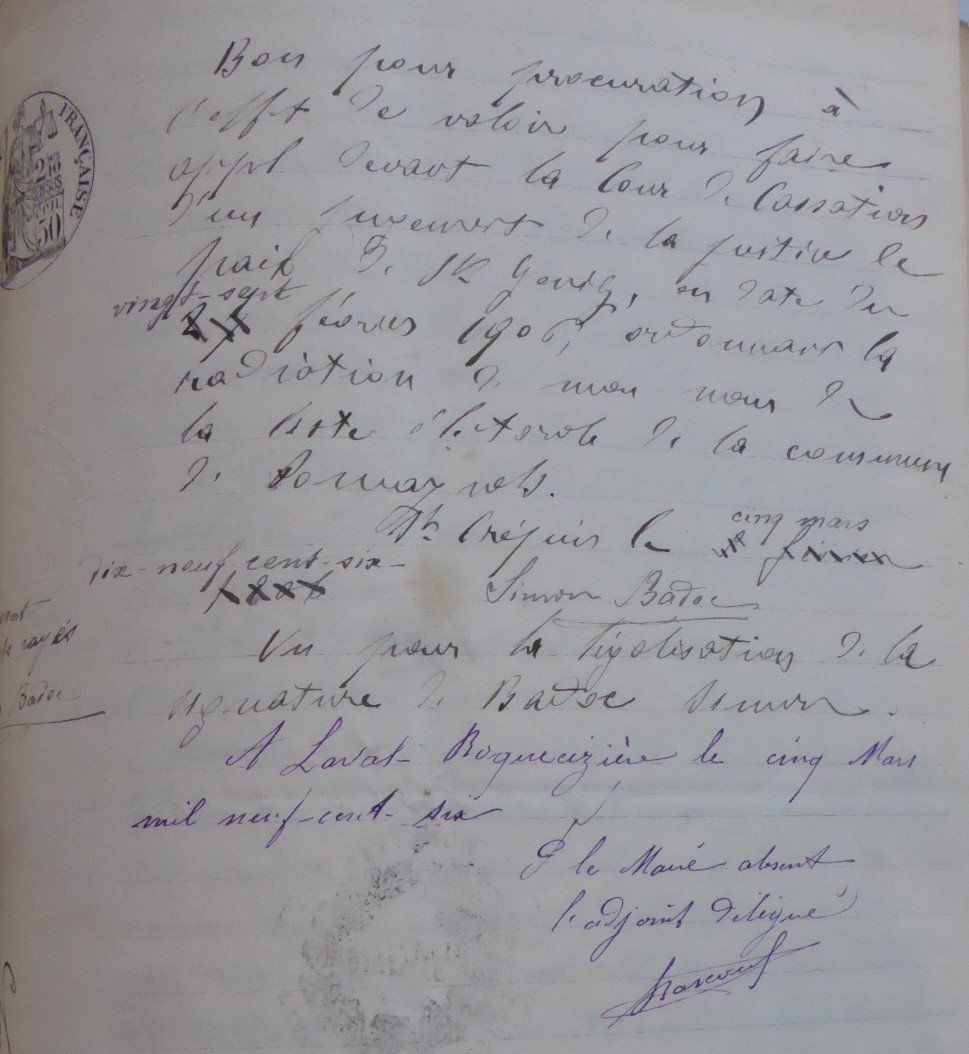 FRANÇAISE
2/10
EN SUS
50
Bon pour procuration à
l'effet de valoir pour faire
appel devant la Cour de Cassation
d'un jugement de la justice de
paix de St Geniez, en date du
vingt-sept
février 1906, ordonnant la
radiation de mon nom de
la liste électorale de la commune
de Pomayrols.
St Crépin le cinq mars
dix-neuf cent-six
Simon Badoc
rayés
Badoc
Vu pour la légalisation de la
signature de Badoc Simon.
A Laval-Roquecezière le cinq Mars
mil neuf-cent-six
P le Maire absent
l'adjoint délégué